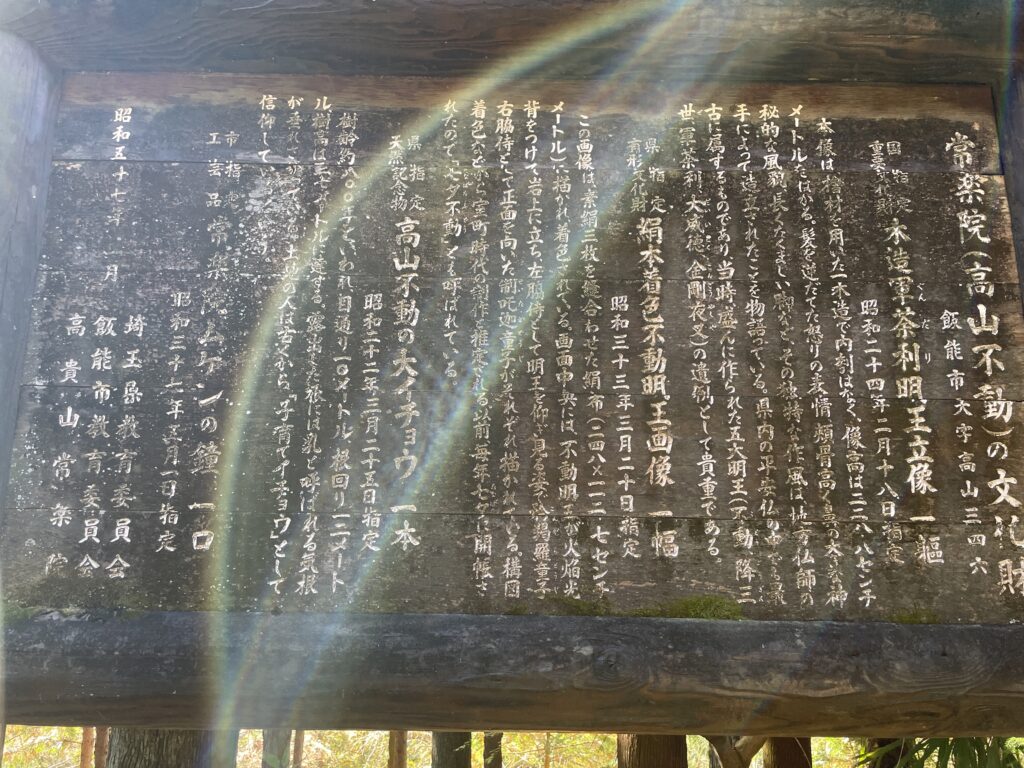 常楽院(高山不動)の文化財
飯能市大字高山三四六
国指定
重要文化財
木造軍荼利明王立像 一軀
ぐんだり
昭和二十四年二月十八日指定
本像は、檜材を用いた一木造で内刳はなく、像高は二二八・八センチ
メートルをはかる。髪を逆だてた怒りの表情、頬骨高く鼻の大きな神
秘的な風貌、長くたくましい脚部など、その独特な作風は、地方仏師の
手によって造立されたことを物語っている。県内の平安仏の中でも最
古に属するものであり、当時、盛んに作られた五大明王(不動、降三
世、軍荼利、大威徳、金剛夜叉)の遺例として貴重である。
県指定
有形文化財
絹本着色不動明王画像 一幅
昭和三十三年三月二十日指定
この画像は、素絹二枚を縫合わせた絹布(二四八×一二七センチ
メートル)に描かれ、着色されている。画面中央には、不動明王が火焔光
背をつけて、岩上に立ち、左脇侍として明王を仰ぎ見る姿の矜羯羅童子
右脇侍として正面を向いた制吒迦童子がそれぞれ描かれている。構図
着色などから室町時代の制作と推定される。以前、毎年七夕に開帳さ
れたので、「七夕不動」とも呼ばれている。
県指定
天然記念物
高山不動の大イチョウ 一本
昭和二十二年三月二十五日指定
樹齢約八〇〇年といわれ、目通り一〇メートル、根回り一二メート
ル、樹高は三七メートルに達する。露出した根には、乳と呼ばれる気根
が垂れ、土地の人は古くから、「子育てイチョウ」として
信仰している。
市指定
工芸品
常楽院の 鐘 一口
昭和三十七年五月一日指定
昭和五十七年一月
埼玉県教育委員会
飯能市教育委員会
高貴山常楽院